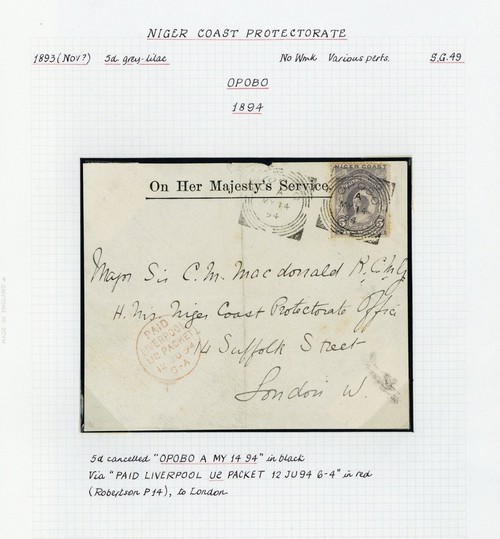 NIGER COAST PROTECTORATE
1893 (Nov?) 5d grey-lilac No Wmk Various perfs. S.G.49
OPOBO
1894
NIGER COAST
On Her Majesty's Service.
A
MY 14
94
A
MY 14
94
Major Sir C. M. Macdonald K.C.M.G
H. Ms. Niger Coast Protectorate Office
14 Suffolk Street
London W.
PAID
LIVERPOOL
US PACKET
12 JU 94
6-A
MADE IN ENGLAND
5d cancelled "OPOBO A MY 14 94" in black
Via "PAID LIVERPOOL US PACKET 12 JU 94 6-4" in red
(Robertson P14), to London